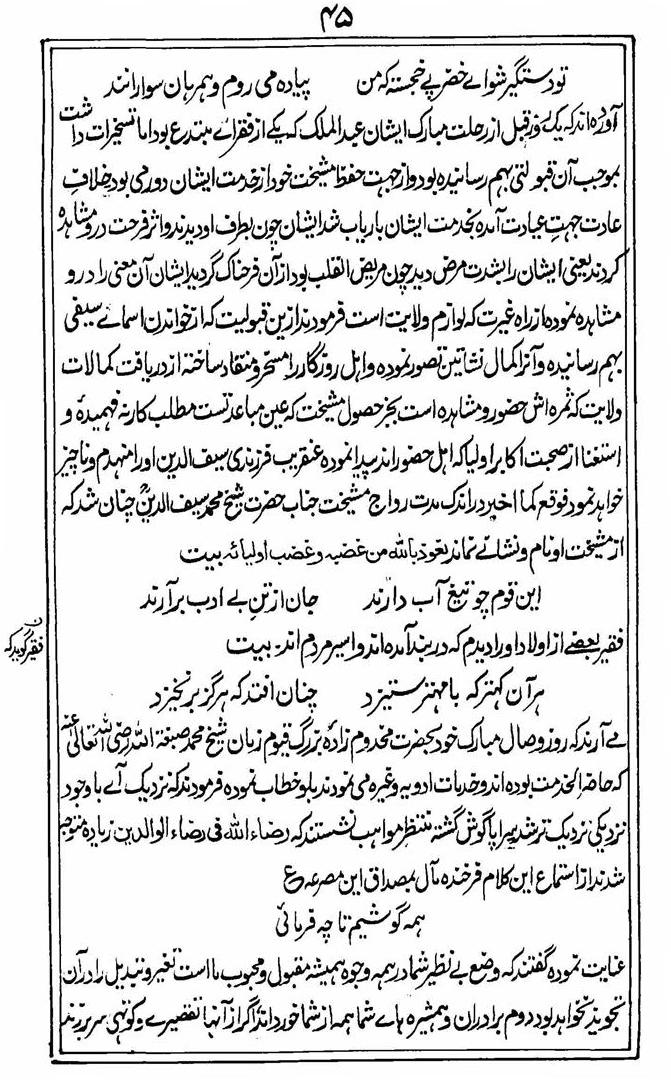 ۴۵
تو دستگیر شو اے خضر پے خجسته که من پیاده می روم و همرهان سوارانند
آورده اند که یک روز قبل از رحلت مبارک ایشان عبد الملک که یکے از فقراے مبتدع بود اما تسخیرات داشت
بموجب آن قبولتی بهم رسانیده بود و از جهت حفظ مشیخت خود از خدمت ایشان دور می بود خلاف
عادت جهت عیادت آمده بخدمت ایشان باریاب شد ایشان چون بطرف او دیدند و اثر فرحت درو مشاهده
کردند یعنی ایشان را بشدت مرض دید چون مریض القلب بود از آن فرحناک گردید ایشان آن معنی را درو
مشاهده نموده از راه غیرت که لوازم ولایت است فرمودند ازین قبولیت که از خواندن اسماے سیفی
بهم رسانیده و آنرا کمال نشاتین تصور نموده و اهل روزگار را مسخر و منقاد ساخته از دریافت کمالات
ولایت که ثمره اش حضور و مشاهده است بجز حصول مشیخت که عین مباعدتست مطلب کار نه فهمیده و
استغنا از صحبت اکابر اولیا که اهل حضور اند پیدا نموده عنقریب فرزندی سیف الدین او را منهدم و ناچیز
خواهد نمود فوقع کما اخبر در اندک مدت رواج مشیخت جناب حضرت شیخ محمد سیف الدینؒ چنان شد که
از مشیخت او نام و نشانے نماند نعوذ بالله من غضبه و غضب اولیائه بیت
این قوم چو تیغ آب دارند جان از تن بے ادب برآرند
فقیر بعضے از اولاد او را دیدم که در بند آمده اند و اسیر مردم اند ـ بیت
ن
فقیر گوید که
هر آن کهتر که با مهتر ستیزد چنان افتد که هرگز بر نخیزد
مے آرند که روز وصال مبارک خود بحضرت مخدوم زادۂ بزرگ قیوم زمان شیخ محمد صبغة الله رضی الله تعالی عنه
که حاضر الخدمت بوده اند و خدمات ادویه و غیره می نمودند بلو خطاب نموده فرمودند که نزدیک آے باوجود
نزدیکی نزدیک تر شد سراپا گوش گشته منتظر مواهب نشستند که رضاء الله فی رضاء الوالدین زیاده متوجه
شدند از استماع این کلام فرخنده مآل بمصداق این مصرعه ع
همه گوشیم تا چه فرمائی
عنایت نموده گفتند که وضع بے نظیر شما در همه وجوه همیشه مقبول و محبوب ما است تغیر و تبدیل را در آن
تجویز نخواهد بود دوم برادران و همشیره هاے شما همه از شما خورد اند اگر از آنها تقصیرے و کوتهی سر بر زند